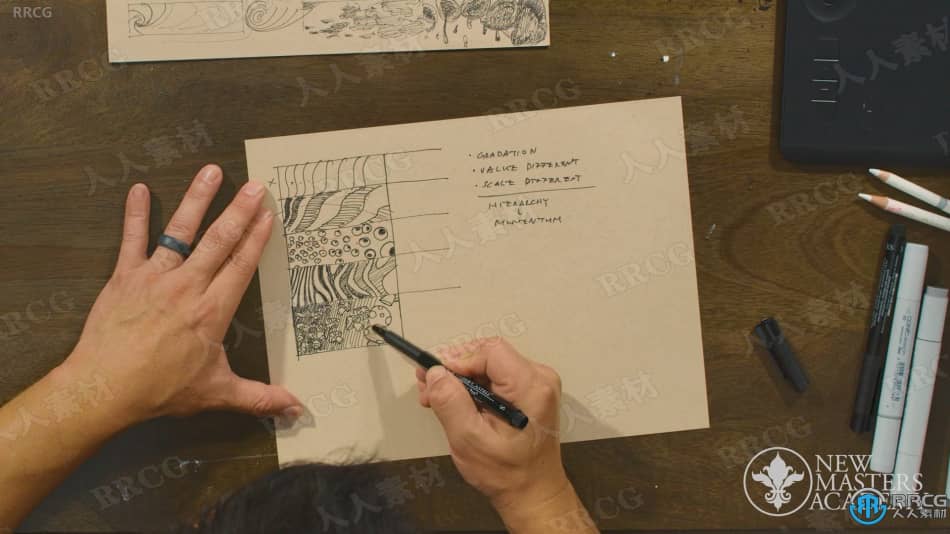 RRCG
• GRADATION
• VALUE DIFFERENT
• SCALE DIFFERENT
HIERARCHY
&
MOMENTUM
NEW
MASTERS
RRCG
人人素材